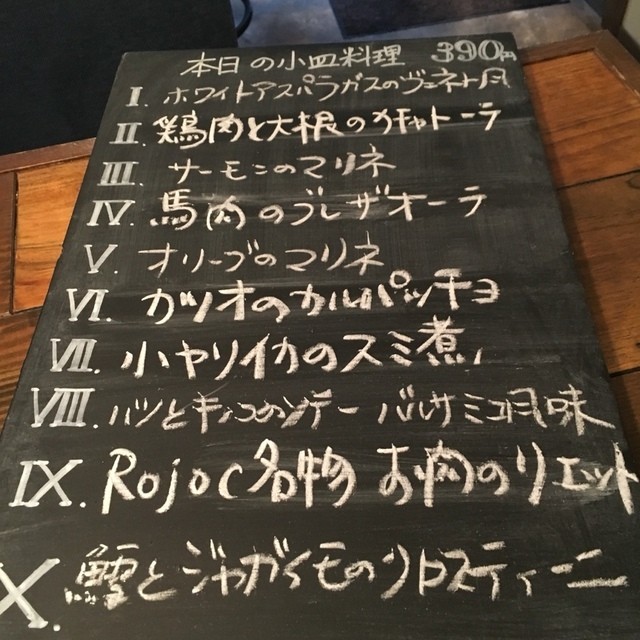 本日の小皿料理 390円
I. ホワイトアスパラガスのヴェネト風
II. 鶏肉と大根のカチャトーラ
III. サーモンのマリネ
IV. 馬肉のブレザオーラ
V. オリーブのマリネ
VI. カツオのカルパッチョ
VII. 小ヤリイカのスミ煮
VIII. ハツとキノコのソテー バルサミコ風味
IX. Rojoc名物 お肉のリエット
X. 鱈とジャガイモのクロスティーニ